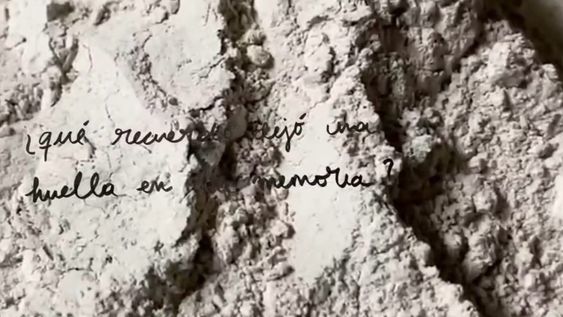 ¿qué recuerdo dejó una
huella en memoria?